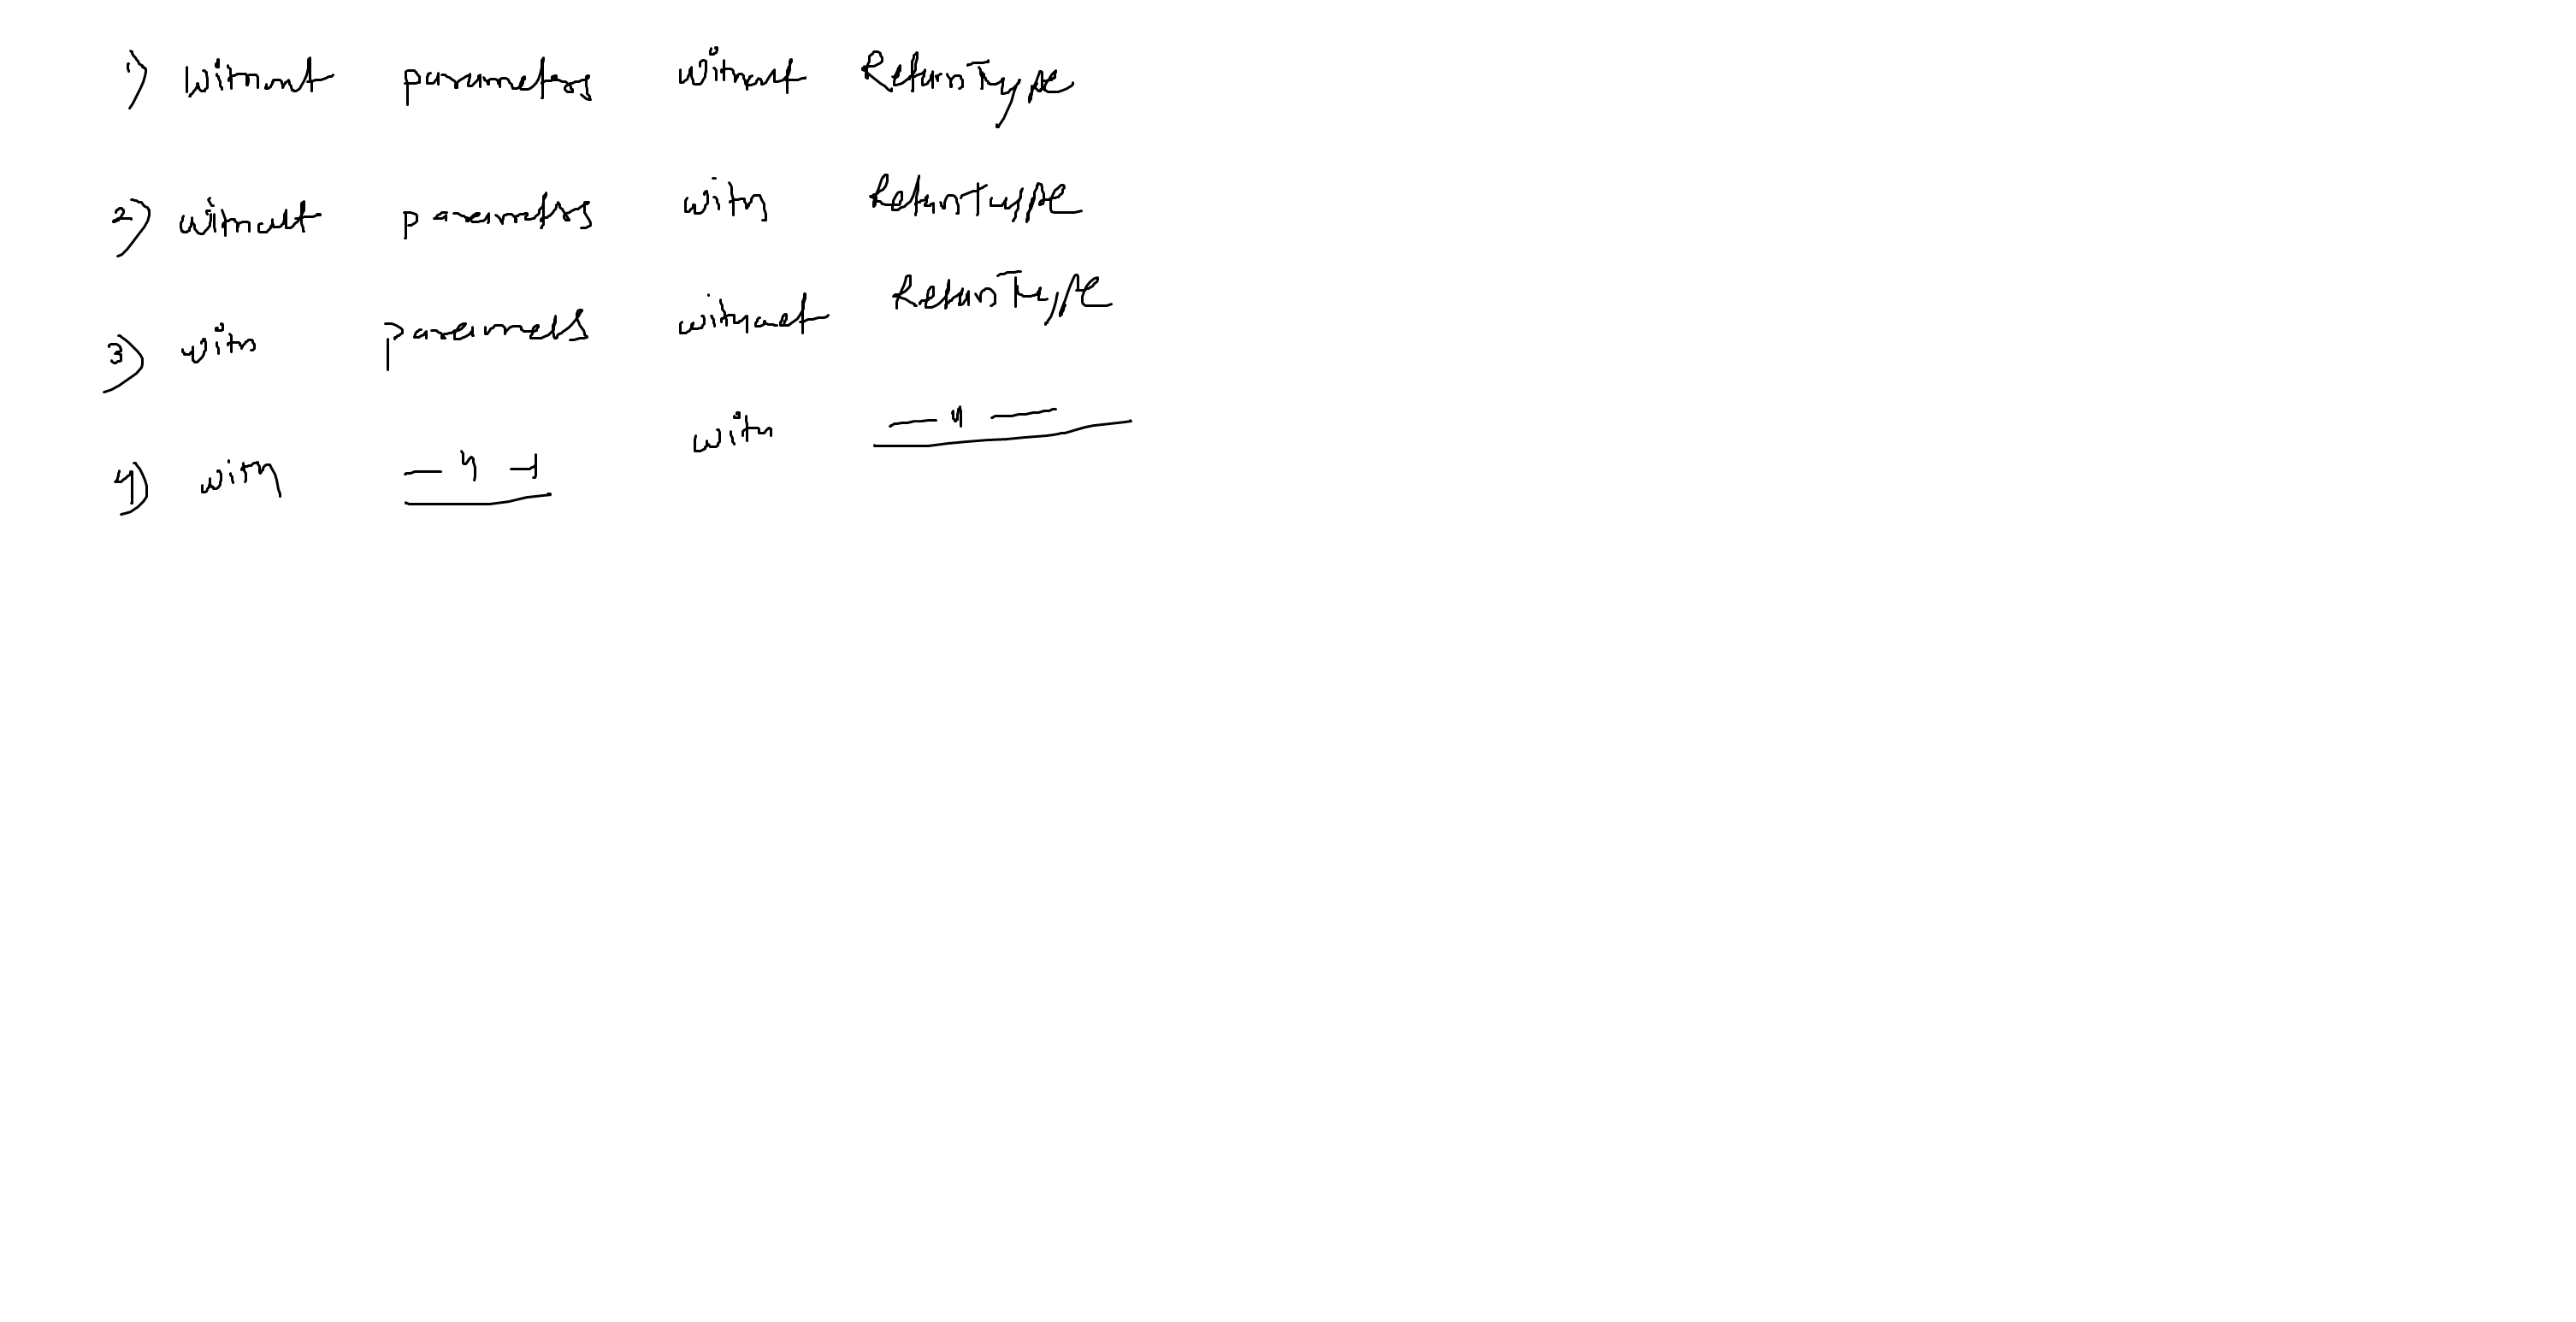 1) Without parameters without ReturnType
2) without parameters with ReturnType
3) with parameters without ReturnType
4) with — " — with — " —